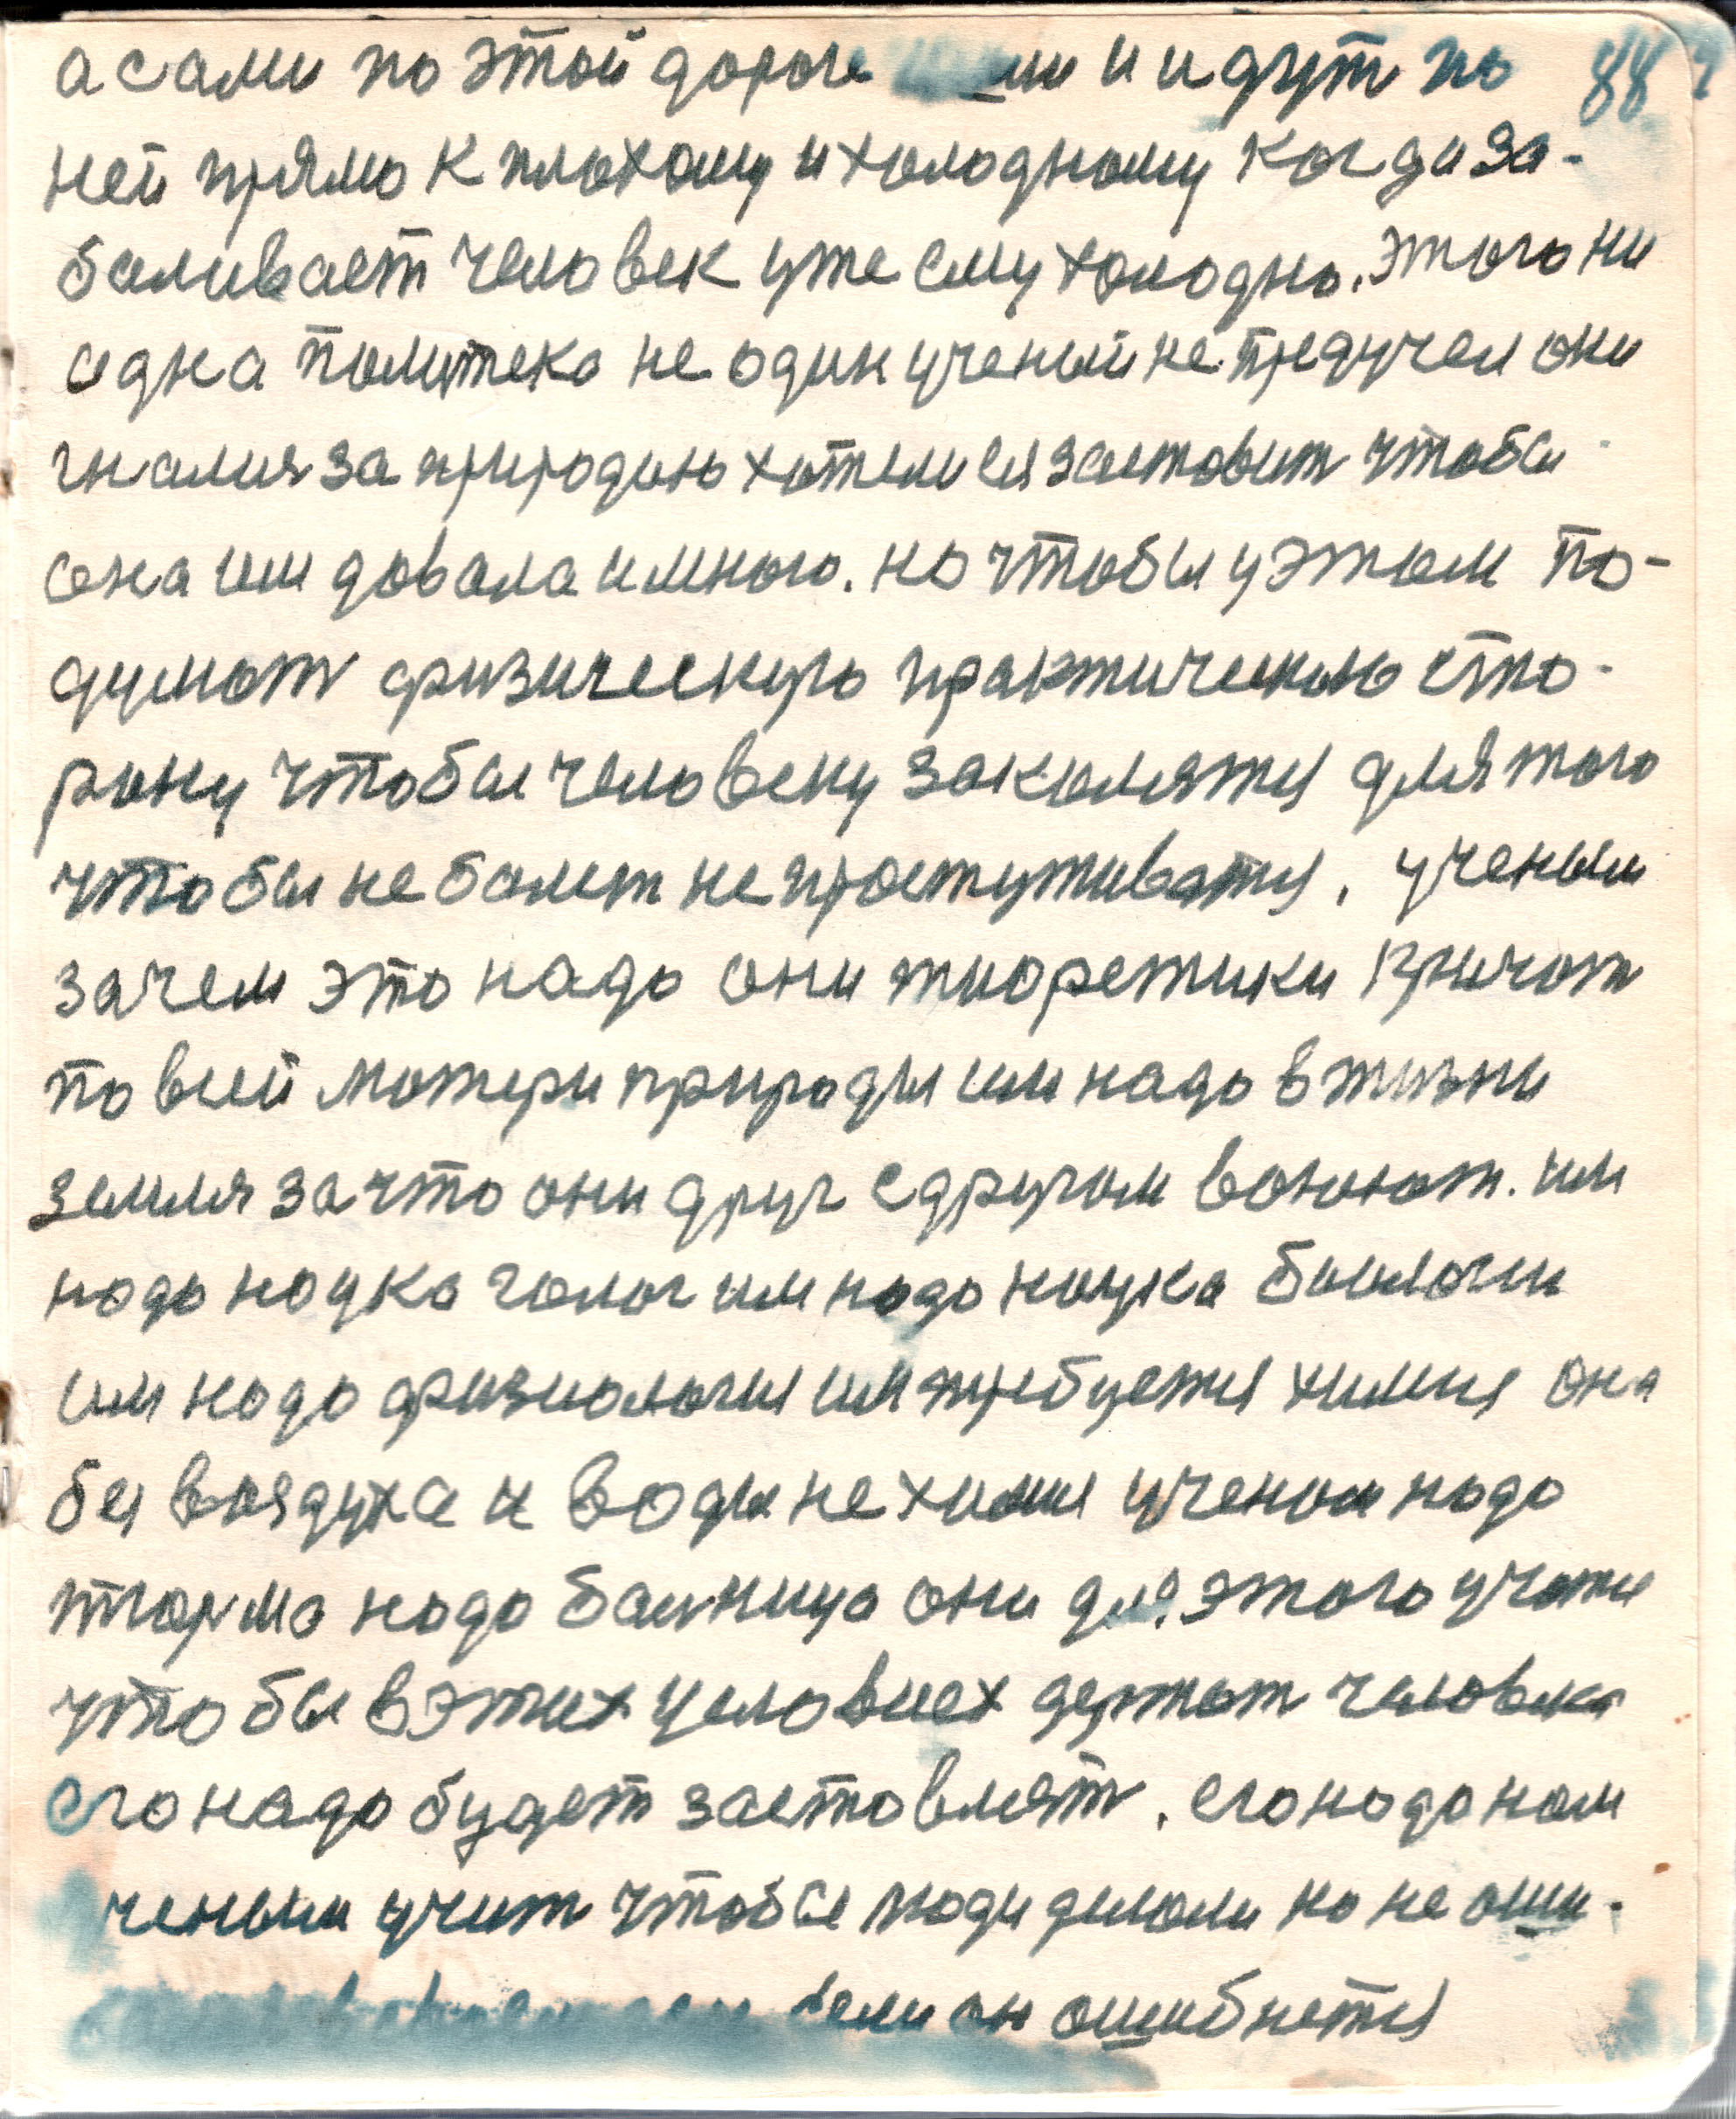 а сами по этой дороге шли и идут по 88
ней прямо к плохому и холодному когда за-
баливает человек уже ему холодно. этого ни
одна политека не один ученый не предучел они
гналися за природою хотели ея застовит чтобы
она им довала и много. но чтобы у этом по-
думат физическую практическою сто-
рону чтобы человеку закалятся для того
чтобы не болет не простуживатся. ученым
зачем это надо они тиоретики кричат
по всей матери природы им надо в жизни
земля за что они друг с другом воюют. им
надо наука голог им надо наука биологи
им надо физиология им требуется химия она
без воздуха и воды не химия ученом надо
тюрма надо балница они для этого учатся
чтобы в этих условиех держат человека
его надо будет застовлят. его надо нам
ученым учит чтобы люди делали но не оши-
если он ошибнется